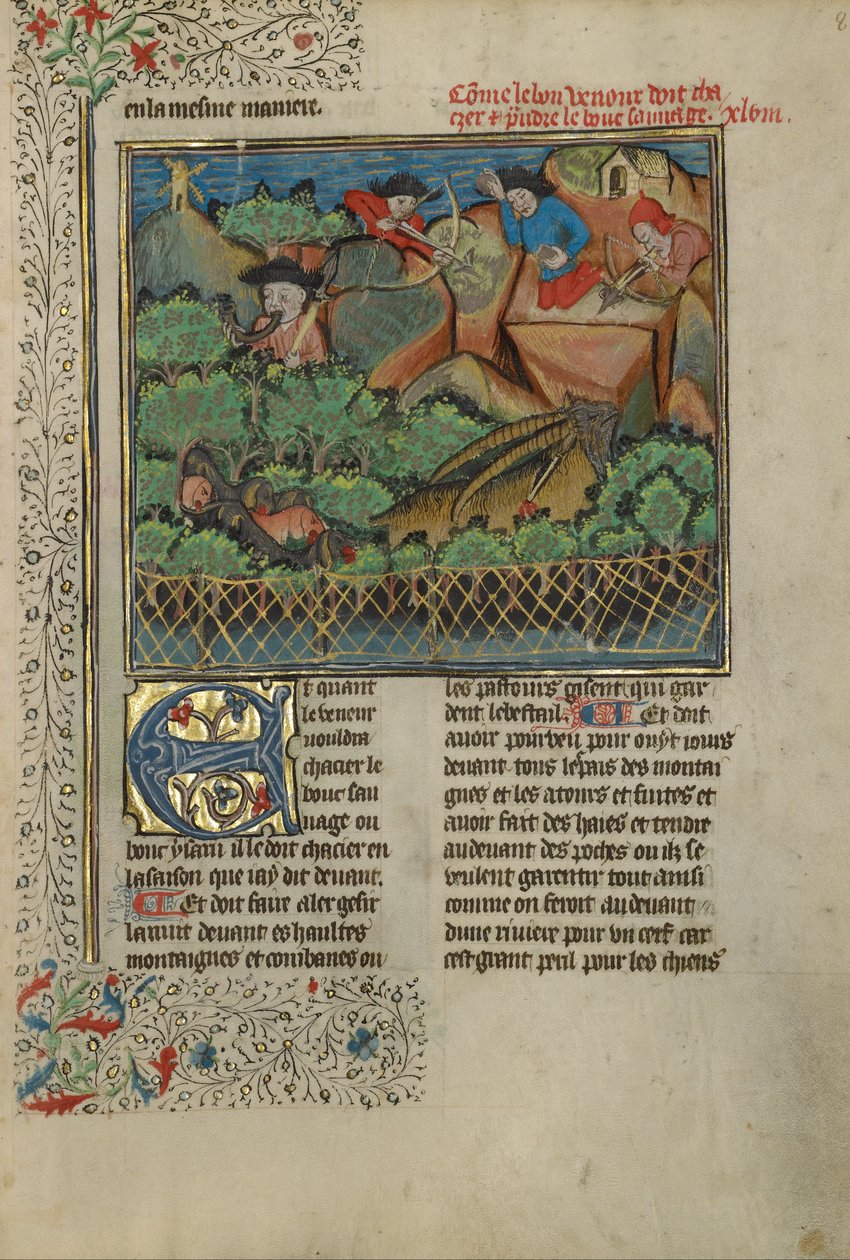 en la mesme maniere.
Cõme le bon venour doit cha
cier & p̃ndre le bouc sauuage. xlvm.
Et quant
le veneur
vouldra
chacier le
bouc sau
uage ou
bouc ysaru il le doit chacier en
la saison que iay dit deuant.
Et doit faire aler gesir
la nuit deuant es haultes
montaignes et combanes ou
les pastours gisent qui gar
dent le bestail. Et doit
auoir pourueu pour ouyt iours
deuant tous le pais des montai
gnes et les atours et fuites et
auoir fait des haies et tendre
au deuant des poches ou ilz se
veulent garentir tout ainsi
comme on feroit au deuant
dune riuiere pour vn cerf car
cest grant peril pour les chiens